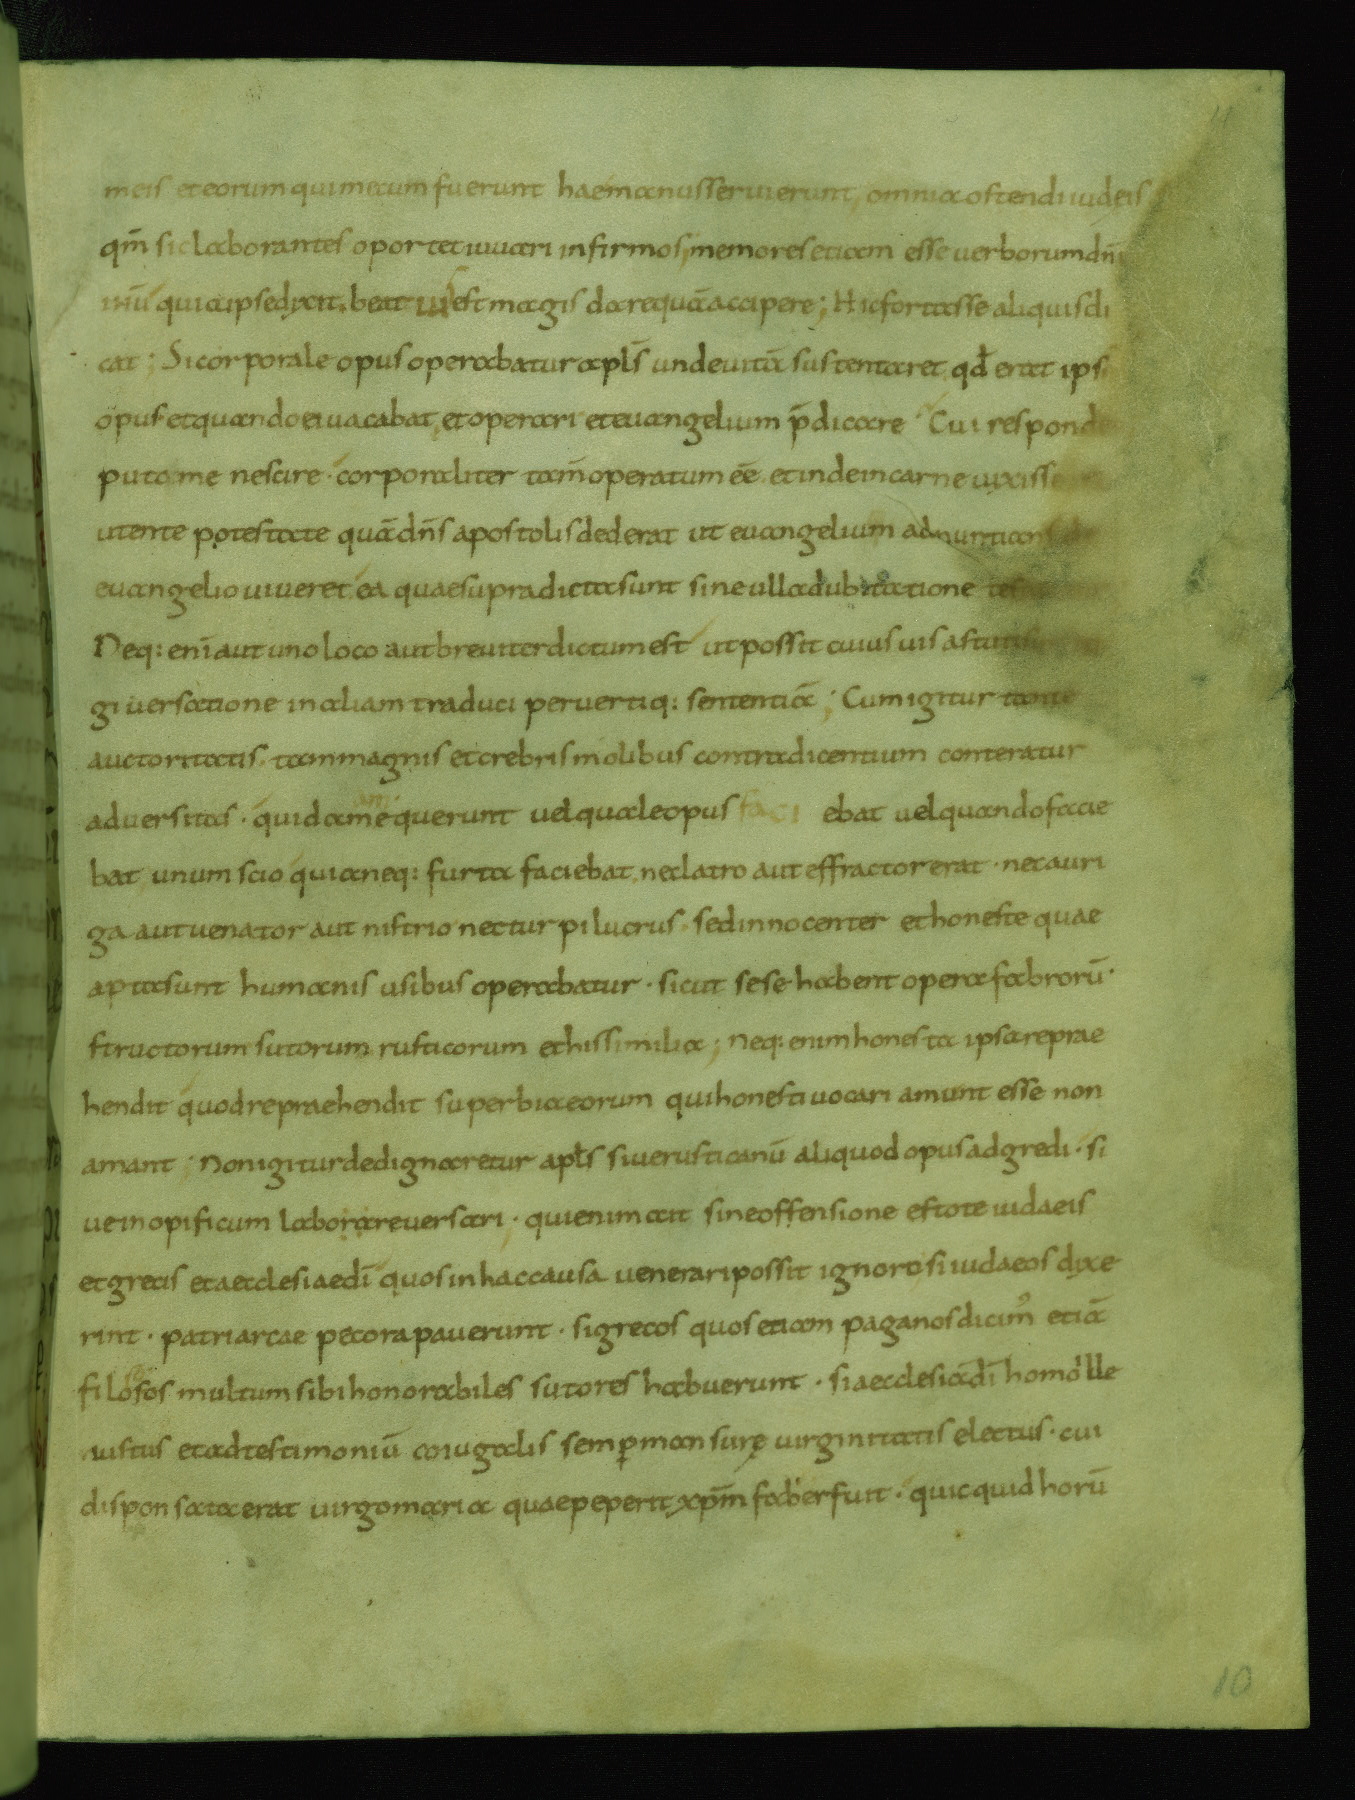 meis et eorum qui mecum fuerunt hae manus seruierunt, omnia ostendi iudeis
qm̄ sic laborantes oportet iuuari infirmos, memores etiam esse uerborum dn̄i
ihū quia ipse dixit. beatius est magis dare quā accipere; Hic fortasse aliquis di
cat; Si corporale opus operabatur apl̄s unde uitā sustentaret qd̄ erat ips
opus et quando ei uacabat, et operari et euangelium p̄dicare Cui responde
puta me nescire · corporaliter tam̄ operatum eē et inde in carne uixisse
utente potestate quā dn̄s apostolis dederat ut euangelium adnuntians
euangelio uiueret ea quae supradicta sunt sine ulla dubitatione
Neq: enī aut uno loco aut breuiter dictum est ut possit cuiusuis
giuersatione in aliam traduci peruertiq: sententiā; Cum igitur tante
auctoritatis tam magnis et crebris molibus contradicentium conteratur
aduersitas · quid a me querunt uel quale opus faci ebat uel quando facie
bat unum scio quia neq: furta faciebat, nec latro aut effractor erat · nec auri
ga aut uenator aut histrio nec turpilucrus · sed innocenter et honeste quae
apta sunt humanis usibus operabatur · sicut sese habent opera fabrorū·
structorum sutorum rusticorum et hissimilia; neq: enim honesta ipsa reprae
hendit quod repraehendit superbia eorum qui honesti uocari amant esse non
amant; Non igitur dedignaretur apl̄s siue rusticanū aliquod opus adgredi · si
ue in opificum labora re uersari · qui enim ait sine offensione estote iudaeis
et grecis et aecclesiae dī quos in hac causa uenerari possit ignoro, si iudaeos dixe
rint · patriarcae pecora pauerunt · si grecos quos etiam paganos dicim᾽ etiā
filosos multum sibi honorabiles sutores habuerunt · si aecclesiā dī homo ille
iustus et ad testimoniū coiugalis semp mansurę uirginitatis electus · cui
disponsata erat uirgo maria quae peperit xpm̄ faber fuit · quicquid horū
10